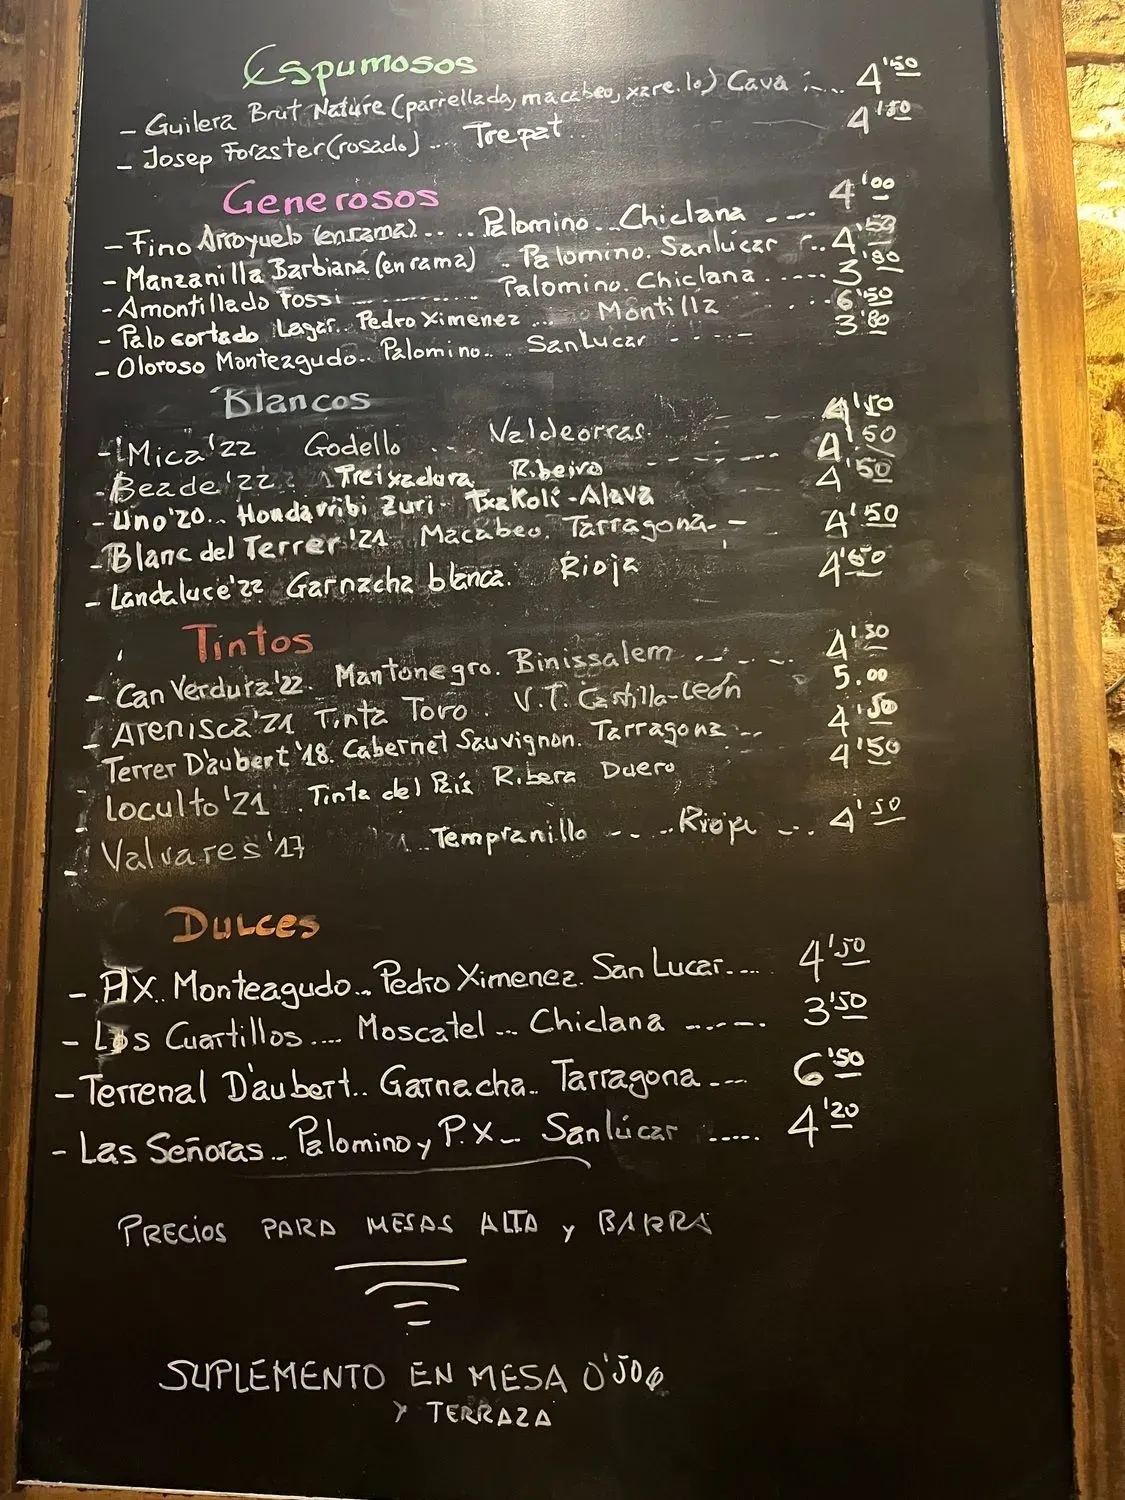 Espumosos
- Guilera Brut Nature (parrellada, macabeo, xare.lo) Cava .... 4'50
- Josep Foraster (rosado) ... Trepat 4'50
Generosos
- Fino Arroyuelo (enrama) .... Palomino... Chiclana ---. 4'00
- Manzanilla Barbiana (en rama) .. Palomino. Sanlúcar ... 4'50
- Amontillado Fossi ............ Palomino. Chiclana ..... 3'80
- Palo cortado Lagar.. Pedro Ximenez ... Montilla ... 6'50
- Oloroso Monteagudo.. Palomino... SanLucar ----- 3'80
Blancos
- Mica '22 Godello ... Valdeorras. 4'50
- Beade '22 Treixadura Ribeiro 4'50
- Uno '20... Hondarribi Zuri - Txakoli - Alava 4'50
- Blanc del Terrer '21 Macabeo. Tarragona. - 4'50
- Landaluce '22 Garnacha blanca. Rioja 4'50
Tintos
- Can Verdura '22. Mantonegro. Binissalem ...... 4'30
- Arenisca '21 Tinta Toro. V.T. Castilla-León 5.00
- Terrer D'aubert '18. Cabernet Sauvignon. Tarragona -- 4'50
- Loculto '21 Tinta del País Ribera Duero 4'50
- Valvares '17 Tempranillo -- .. Rioja ... 4'50
Dulces
- P.X. Monteagudo... Pedro Ximenez. San Lucar.... 4'50
- Los Cuartillos.... Moscatel ... Chiclana ------. 3'50
- Terrenal D'aubert.. Garnacha.. Tarragona --- 6'50
- Las Señoras... Palomino y P.X... Sanlúcar ..... 4'20
PRECIOS PARA MESAS ALTA y BARRA
SUPLEMENTO EN MESA 0'50
Y TERRAZA